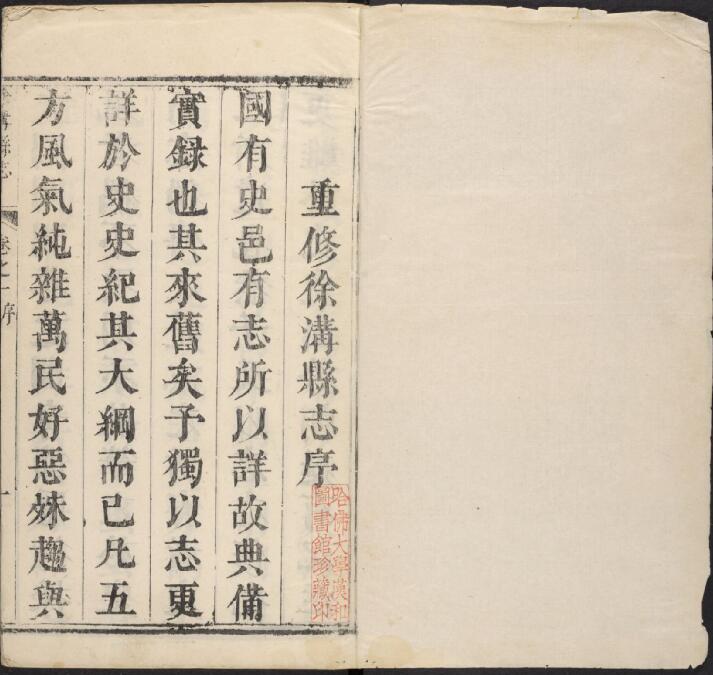 重修徐溝縣志序
國有史邑有志所以詳故典備
實録也其來舊矣予獨以志更
詳於史史紀其大綱而已凡五
方風氣純雜萬民好惡殊趨與
哈佛大學漢和
圖書館珍藏印
溝縣志
卷之一序
一